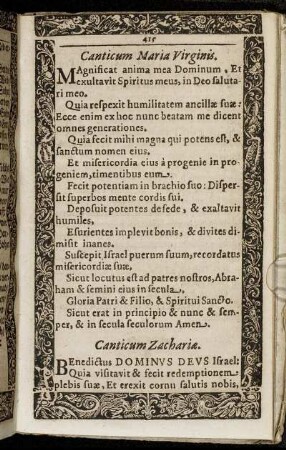 415
Canticum Maria Virginis.
MAgnificat anima mea Dominum, Et
exultavit Spiritus meus, in Deo saluta
ri meo.
Quia respexit humilitatem ancillæ suæ:
Ecce enim ex hoc nunc beatam me dicent
omnes generationes.
Quia fecit mihi magna qui potens est, &
sanctum nomen eius.
Et misericordia eius à progenie in pro
geniem, timentibus eum.
Fecit potentiam in brachio suo: Disper
sit superbos mente cordis sui.
Deposuit potentes de sede, & exaltavit
humiles.
Esurientes implevit bonis, & divites di
misit inanes.
Suscepit Israel puerum suum, recordatus
misericordiæ suæ.
Sicut locutus est ad patres nostros, Abra
ham & semini eius in secula.
Gloria Patri & Filio, & Spiritui Sancto.
Sicut erat in principio & nunc & sem
per, & in secula seculorum Amen.
Canticum Zachariæ.
BEnedictus DOMINVS DEVS Israel:
Quia visitavit & fecit redemptionem
plebis suæ, Et erexit cornu salutis nobis,